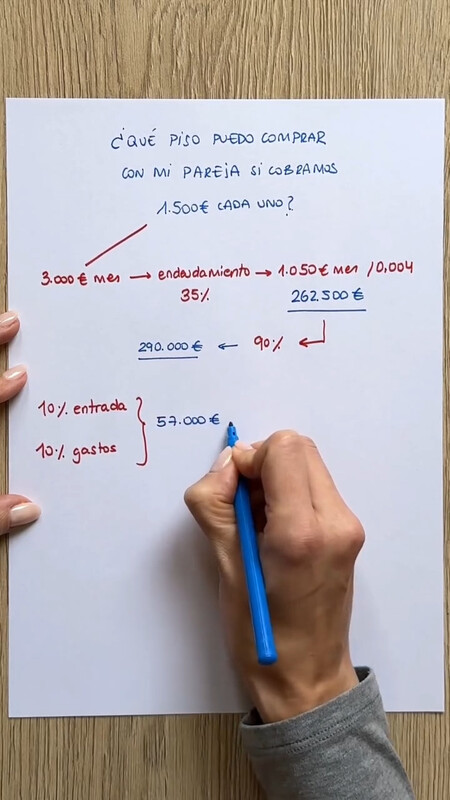 ¿QUÉ PISO PUEDO COMPRAR
CON MI PAREJA SI COBRAMOS
1.500€ CADA UNO?
3.000€ mes → endeudamiento → 1.050€ mes /0,004
35%
262.500€
290.000€ ← 90%
10% entrada
57.000€
10% gastos